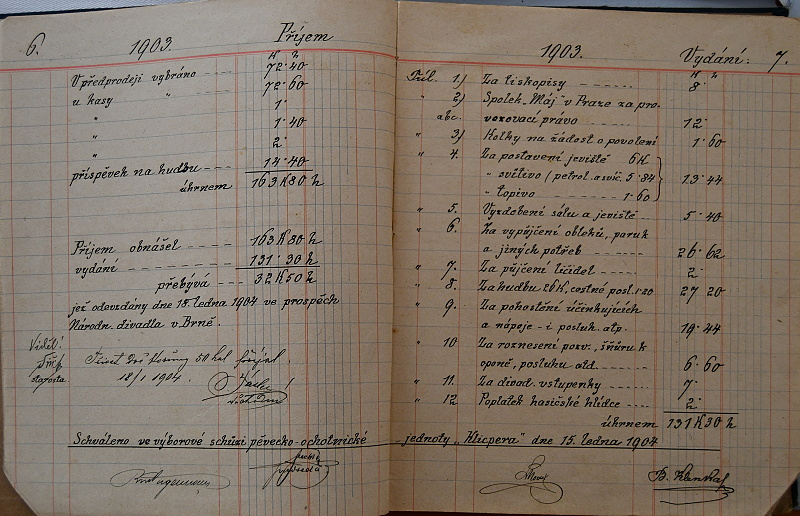 6.
1903.
Příjem
K h
V předprodeji vybráno 72·40
u kasy " 72·60
" 1·
" 1·40
" 2·
příspěvek na hudbu 14·40
úhrnem 163 K 80 h
Příjem obnášel 163 K 80 h
vydání 131·30 h
přebývá 32 K 50 h
jež odevzdány dne 18. ledna 1904 ve prospěch
Národn. divadla v Brně.
Viděl:
starosta
50 hal přijal.
18/1 1904.
Schváleno ve výborové schůzi pěvecko-ochotnické
předseda
1903.
Vydání:
7.
K h
Příl. 1) Za tiskopisy 8·
" 2) Spolek „Máj" v Praze za pro-
abc. vozovací právo 12·
" 3) Kolky na žádost o povolení 1·60
" 4. Za postavení jeviště 6 K
" svítivo (petrol. a svíč. 5·84 13·44
" topivo 1·60
" 5. Vyzdobení sálu a jeviště 5·40
" 6. Za vypůjčení obleků, paruk
a jiných potřeb 26·62
" 7. Za půjčení líčidel 2·
" 8. Za hudbu 26 K, cestné posl. 1·20 27 20
" 9. Za pohostění účinkujících
a nápoje - i posluh. atp. 19·44
" 10 Za roznesení pozv., šňůru k
oponě, posluhu atd. 6·60
" 11. Za divad. vstupenky 7·
" 12 Poplatek hasičské hlídce 2·
úhrnem 131 K 30 h
jednoty „Klicpera" dne 15. ledna 1904